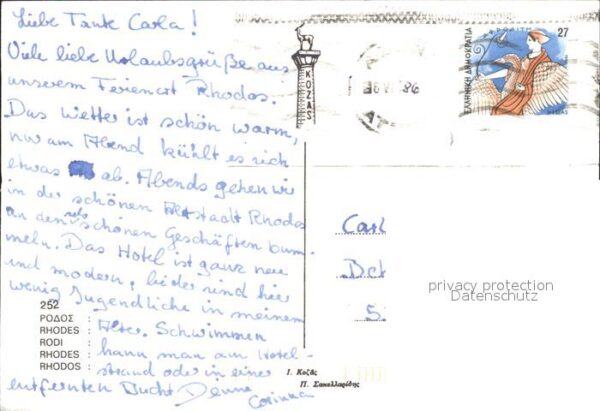 Liebe Tante Carla!
Viele liebe Urlaubsgrüße aus
unserem Ferienort Rhodos.
Das Wetter ist schön warm,
nur am Abend kühlt es sich
etwas ab. Abends gehen wir
in der schönen Altstadt Rhodos
an den schönen Geschäften bum-
meln. Das Hotel ist ganz neu
und modern, leider sind hier
wenig Jugendliche in meinem
Alter. Schwimmen
kann man am Hotel-
strand oder in einer
entfernten Bucht. Deine
Corinna
252
ΡΟΔΟΣ :
RHODES :
RODI :
RHODES :
RHODOS :
Ι. Κοζάς
Π. Σακελλαρίδης
KOZAS
86
27
ΕΛΛΗΝΙΚΗ ΔΗΜΟΚΡΑΤΙΑ
Carl
privacy protection
Datenschutz